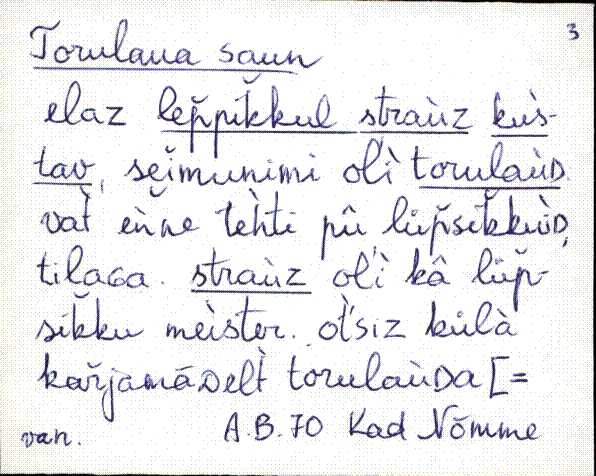 3
Torulaua saun
elaz lep̆pĭkkul straùz kus-
tav, sĕimunimi olì torulaùD.
vat̆ èn̆ne tèhti pû, lüp̆sĕkkùD,
tilaGa. straùz olì kâ lüp̆-
sĭkku meìster. ot̆siz külà
kar̆jamāDelt̀ torulaùDa [=
van. A.B. 70 Kad Nõmme